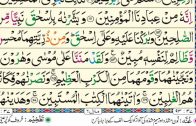 اِنَّهٗ مِنْ عِبَادِنَا الْمُؤْمِنِيْنَ ۝ وَبَشَّرْنٰهُ بِاِسْحٰقَ نَبِيًّا مِّنَ
الصّٰلِحِيْنَ ۝ وَبٰرَكْنَا عَلَيْهِ وَعَلٰٓى اِسْحٰقَ ؕ وَمِنْ ذُرِّيَّتِهِمَا مُحْسِنٌ
وَّظَالِمٌ لِّنَفْسِهٖ مُبِيْنٌ ۝ وَلَقَدْ مَنَنَّا عَلٰى مُوْسٰى وَهٰرُوْنَ ۝
وَنَجَّيْنٰهُمَا وَقَوْمَهُمَا مِنَ الْكَرْبِ الْعَظِيْمِ ۝ وَنَصَرْنٰهُمْ فَكَانُوْا
هُمُ الْغٰلِبِيْنَ ۝ وَاٰتَيْنٰهُمَا الْكِتٰبَ الْمُسْتَبِيْنَ ۝ وَهَدَيْنٰهُمَا